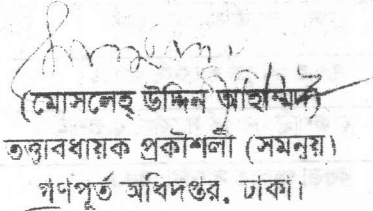 (মোসলেহ্ উদ্দিন আহাম্মদ)
তত্ত্বাবধায়ক প্রকৌশলী (সমন্বয়)
গণপূর্ত অধিদপ্তর, ঢাকা।